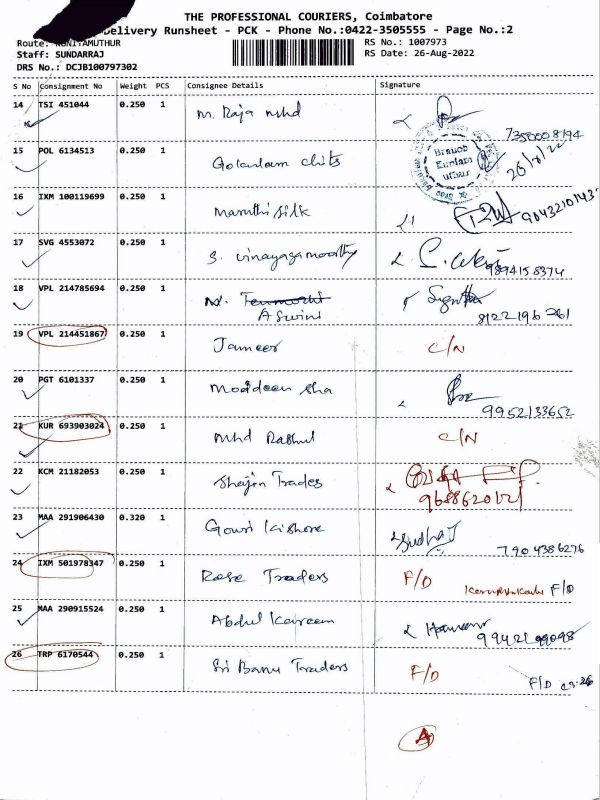 THE PROFESSIONAL COURIERS, Coimbatore
Delivery Runsheet - PCK - Phone No.:0422-3505555 - Page No.:2
Route: KUNIYAMUTHUR
RS No.: 1007973
Staff: SUNDARRAJ
RS Date: 26-Aug-2022
DRS No.: DCJB100797302
S No Consignment No Weight PCS Consignee Details Signature
14 TSI 451044 0.250 1 M. Raja mhd
7350008194
15 POL 6134513 0.250 1 Gokulam chits
Branch
26/8/22
16 IXM 100119699 0.250 1 Maruthi silk
17 SVG 4553072 0.250 1 S. vinayagamoorthy
9894158374
18 VPL 214785694 0.250 1
Aswini 8122196761
19 VPL 214451867 0.250 1 Jameer C/N
20 PGT 6101337 0.250 1 Moideen sha
9952133652
21 KUR 693903024 0.250 1 Mhd Rashul C/N
22 KCM 21182053 0.250 1 Shajin Trades
23 MAA 291906430 0.320 1 Gouri Kishore Sudha J
7904386276
24 IXM 501978347 0.250 1 Rose Traders F/D F/D
25 MAA 290915524 0.250 1 Abdul Kareem
9942199098
26 TRP 6170544 0.250 1 Sri Banu Traders F/D F/D
A